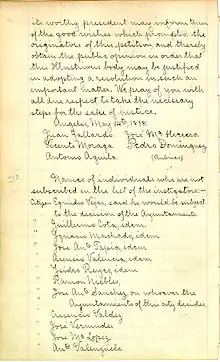 its worthy president may inform them
of the good wishes which prompted the
originators of this petition, and thereby
obtain the public opinion in order that
this Illustrious body may be justified
in adopting a resolution in such an
important matter. We pray of you with
all due respect to take the necessary
steps for the sake of justice.
Angeles, May 14th, 1838.
Juan Gallardo José Ma Herrera
Vicente Moraga Pedro Dominguez
Antonio Aguila (Rubrics)
Names of individuals who are not
subscribed in the list of the instigators:-
Citizen Egnidio said he would be subject
to the decision of the Ayuntamiento
" Guillermo Cota, idem
" Ygnacio Machado, idem
" José Anto Tapia, idem
" Acencio Valencia, idem
" Ysidro Reyes, idem
" Ramon Nieblas,
" José Anto Sanchez, on whatever the
Ayuntamiento of this city decides
" Cresencio Valdez
" José Bermudes
" José Ma Lopez
" Anto Valenzuela